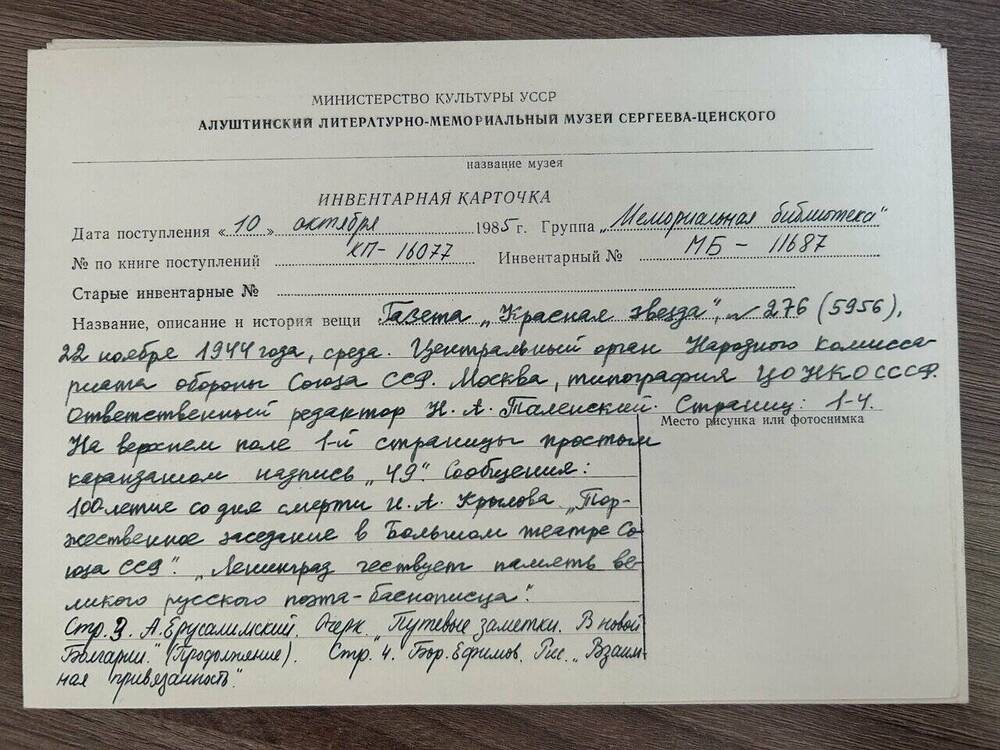 МИНИСТЕРСТВО КУЛЬТУРЫ УССР
АЛУШТИНСКИЙ ЛИТЕРАТУРНО-МЕМОРИАЛЬНЫЙ МУЗЕЙ СЕРГЕЕВА-ЦЕНСКОГО
название музея
ИНВЕНТАРНАЯ КАРТОЧКА
Дата поступления «10» октября 1985 г. Группа „Мемориальная библиотека"
№ по книге поступлений КП-16077 Инвентарный № МБ - 11687
Старые инвентарные №
Название, описание и история вещи Газета „Красная звезда", № 276 (5956),
22 ноября 1944 года, среда. Центральный орган Народного комисса-
риата обороны Союза ССР. Москва, типография ЦОНКОСССР.
Ответственный редактор Н. А. Таленский. Страниц: 1-4.
Место рисунка или фотоснимка
На верхнем поле 1-й страницы простым
карандашом надпись „49". Сообщения:
100-летие со дня смерти И. А. Крылова „Тор-
жественное заседание в Большом театре Со-
юза ССР". „Ленинград чествует память ве-
ликого русского поэта-баснописца".
Стр. 3. А. Ерусалимский. Очерк „Путевые заметки. В новой
Болгарии." (Продолжение). Стр. 4. Бор. Ефимов. Рис. „Взаим-
ная привязанность".